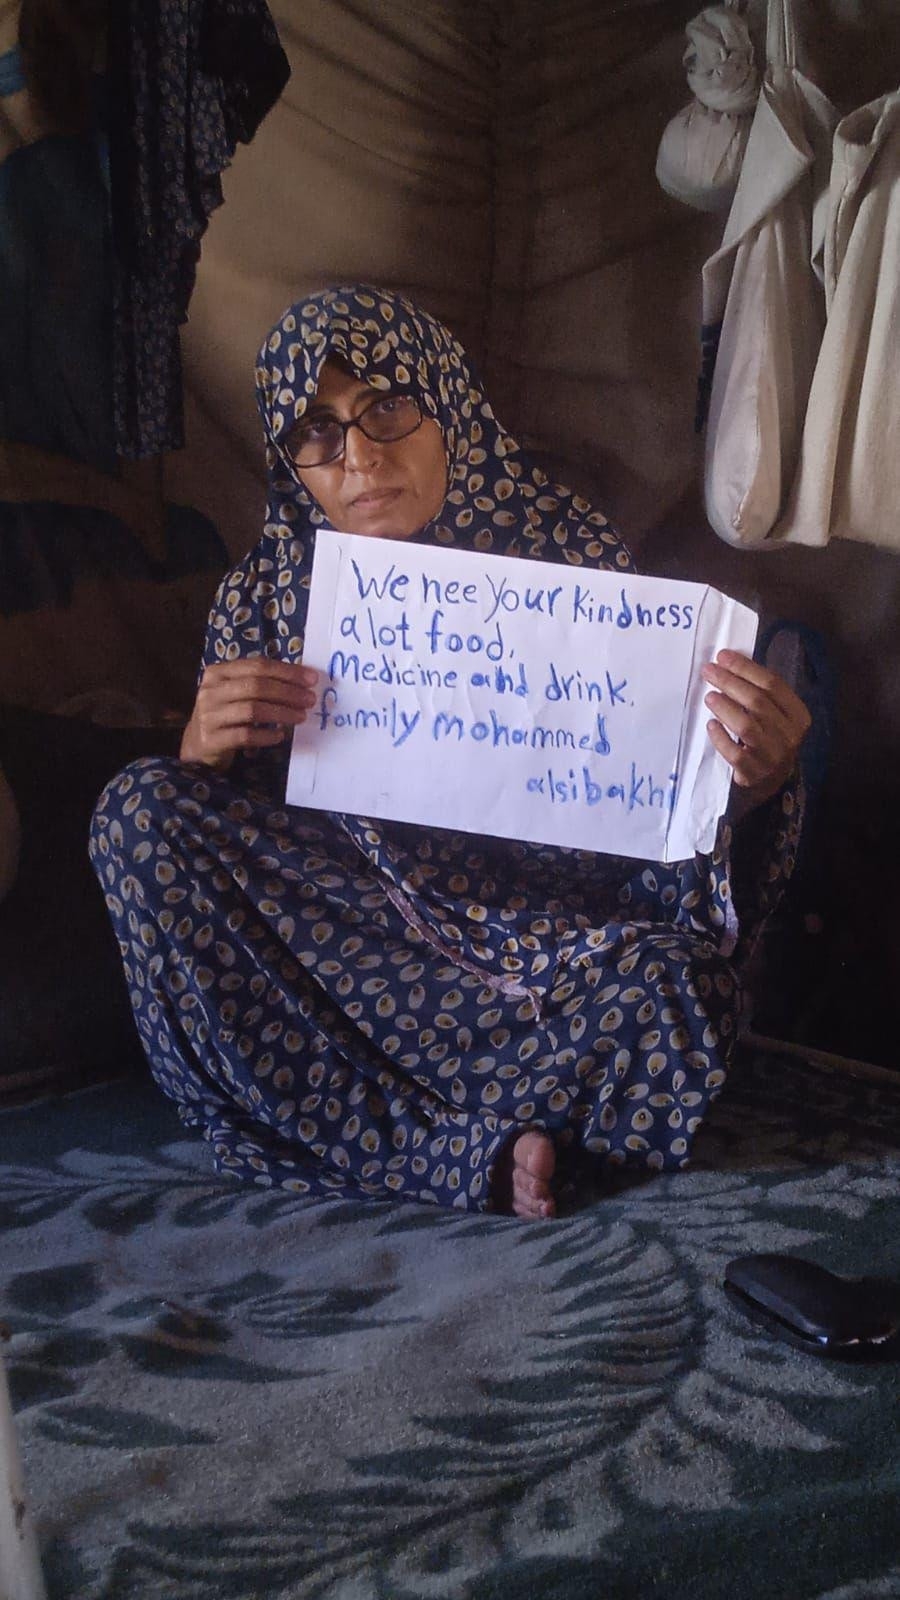 We nee your kindness
a lot food,
Medicine and drink.
family mohammed
alsibakhi